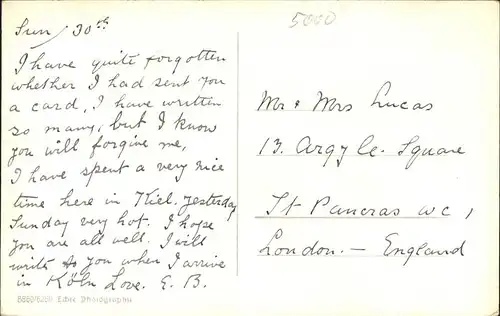 Sun, 30th
5000
I have quite forgotten
whether I had sent you
a card, I have written
so many, but I know
you will forgive me,
I have spent a very nice
time here in Kiel. yesterday
Sunday very hot. I hope
you are all well. I will
write to you when I arrive
in Köln Love. E. B.
Echte Photographie
Mr & Mrs Lucas
13. Argyle. Square
St Pancras W C 1
London. — England